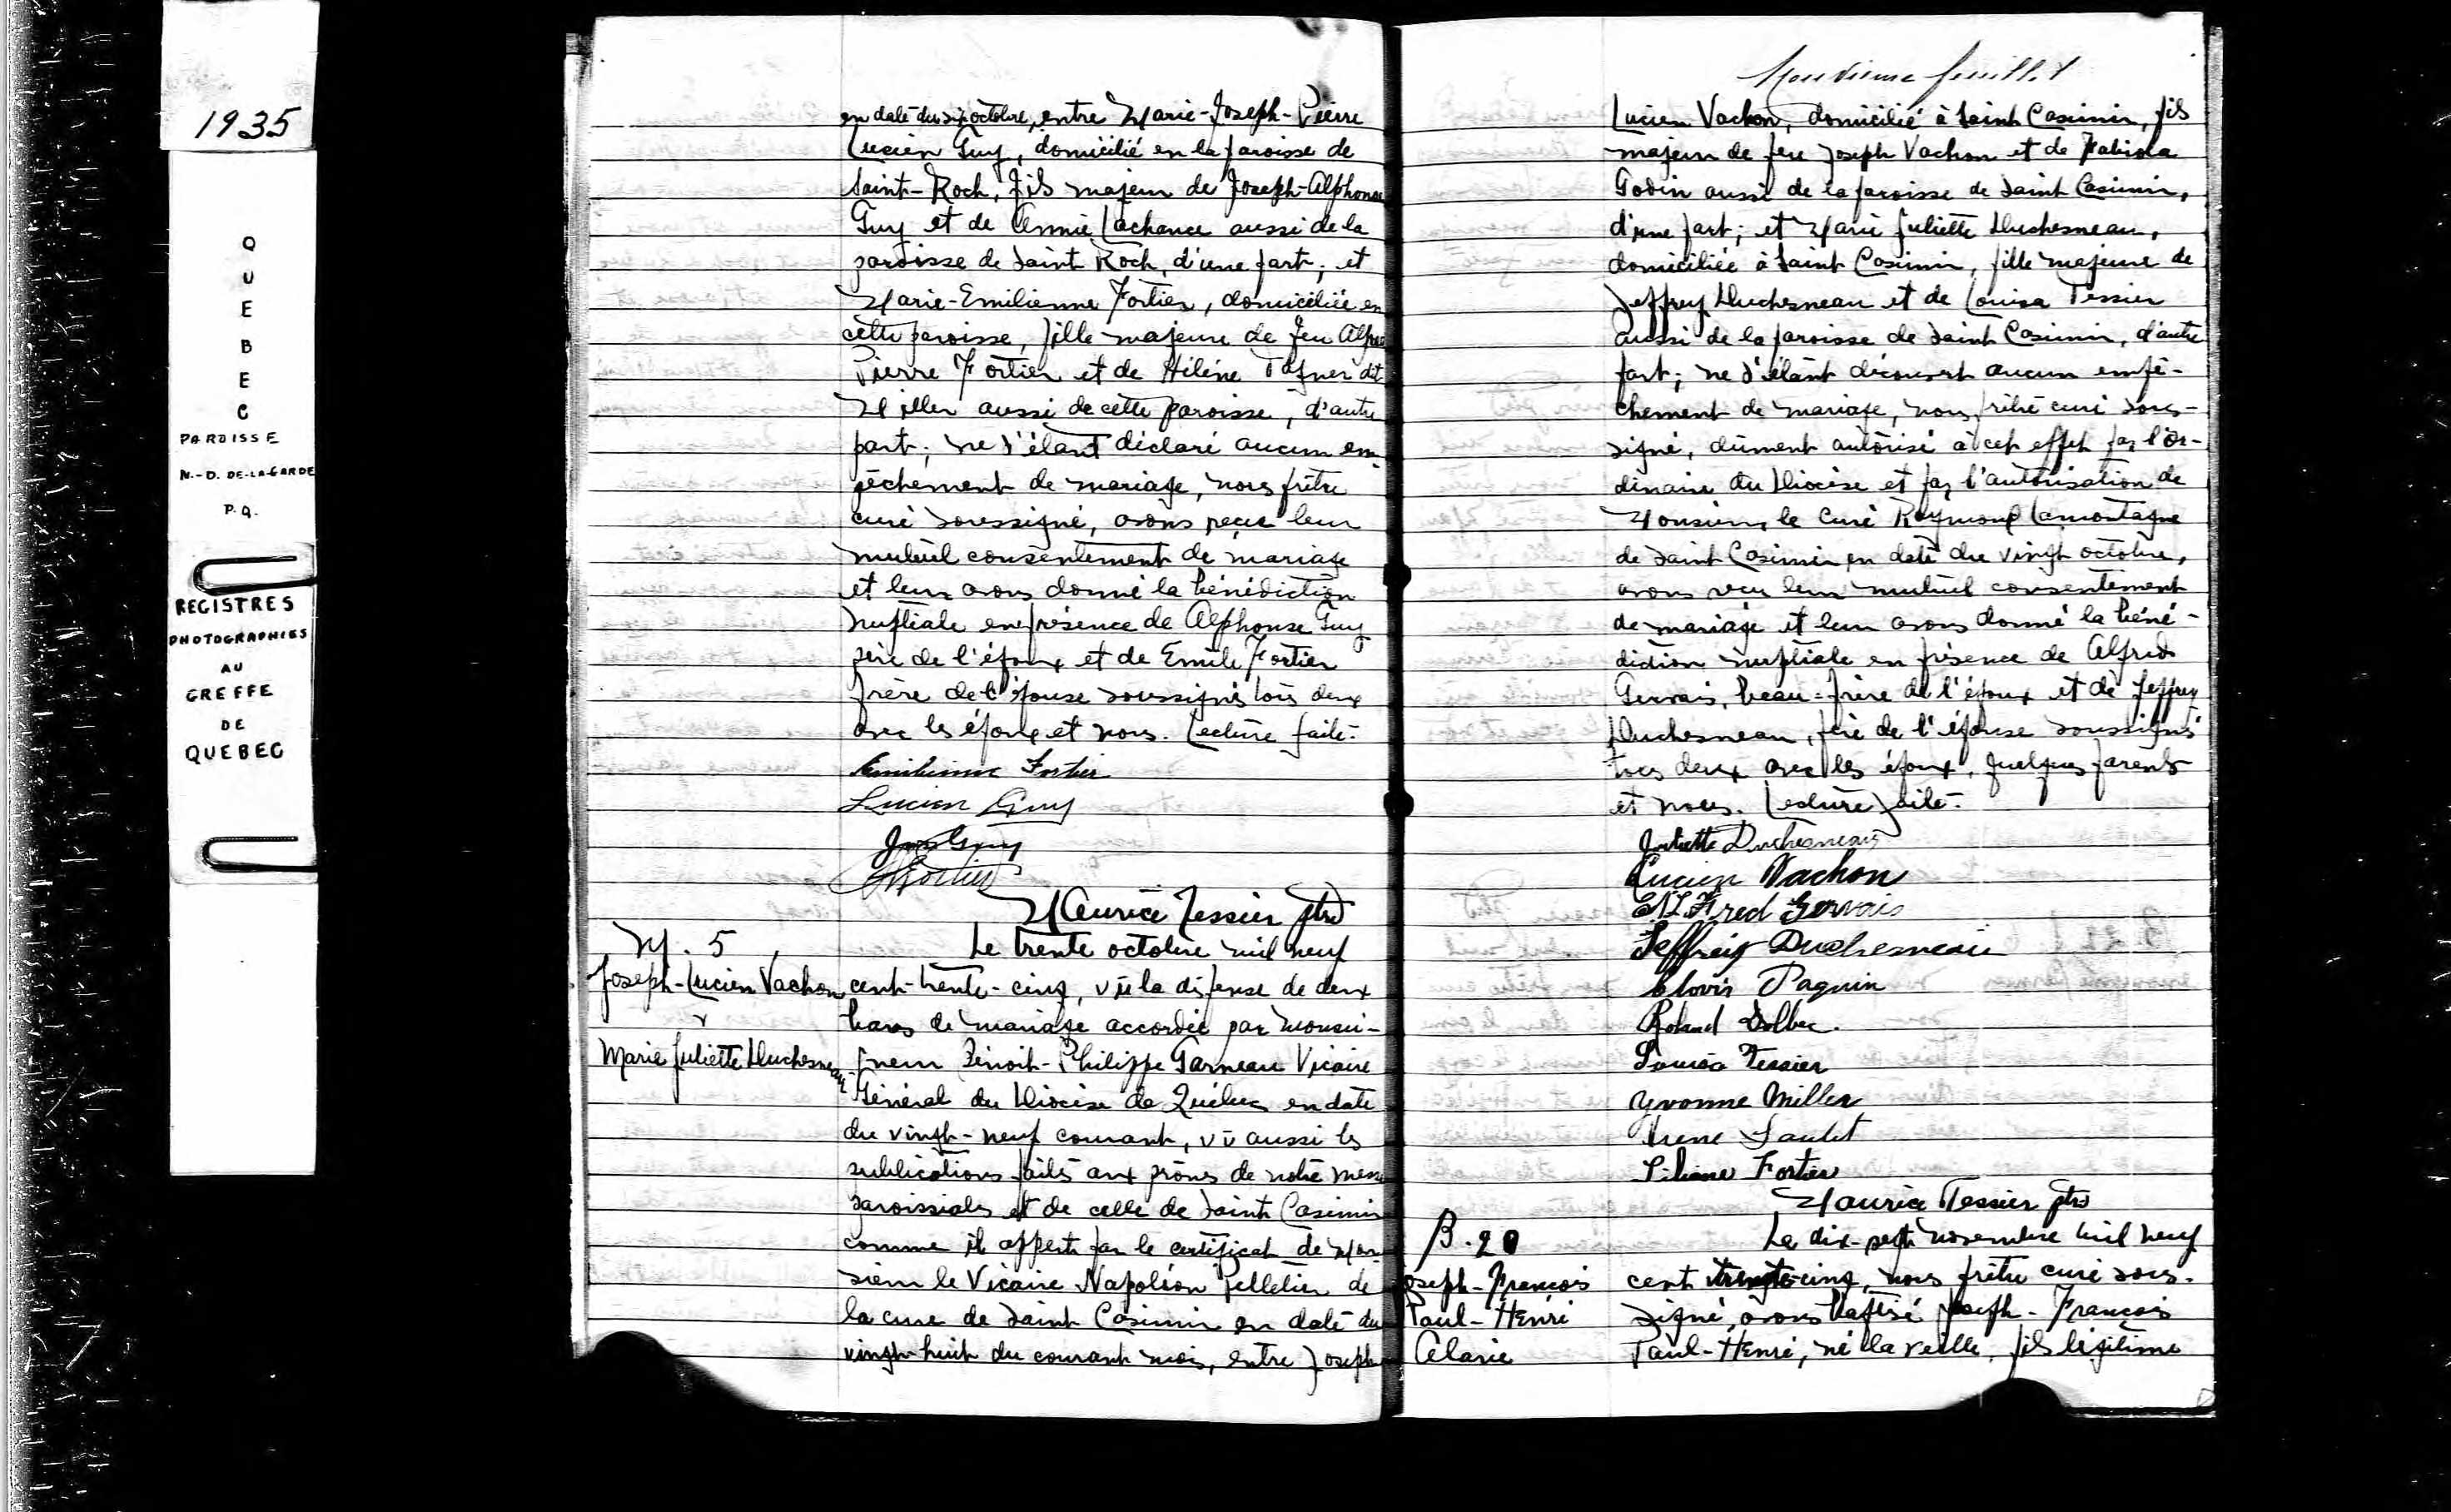 1935
QUEBEC
PAROISSE
N.-D. DE-LA-GARDE
P.Q.
REGISTRES
PHOTOGRAPHIES
AU
GREFFE
DE
QUEBEC
en date du six octobre, entre Marie-Joseph-Pierre
Lucien Guy, domicilié en la paroisse de
Saint-Roch, fils majeur de Joseph-Alphonse
Guy et de Annie Lachance aussi de la
paroisse de Saint Roch, d'une part; et
Marie-Emilienne Fortier, domiciliée en
cette paroisse, fille majeure de feu
Pierre Fortier et de Hélène dit
Miller aussi de cette paroisse, d'autre
part; ne s'étant déclaré aucun em-
pêchement de mariage, nous prêtre
curé soussigné, avons reçu leur
mutuel consentement de mariage
et leur avons donné la bénédiction
nuptiale en présence de Alphonse Guy
père de l'époux et de Emile Fortier
frère de l'épouse soussignés tous deux
avec les époux et nous. Lecture faite.
Emilienne Fortier
Lucien Guy
Jos Guy
Fortier
Maurice Tessier ptre
M. 5
Joseph-Lucien Vachon
&
Marie Juliette Duchesneau
Le trente octobre mil neuf
cent-trente-cinq, vu la dispense de deux
bans de mariage accordée par Monsei-
gneur Benoit-Philippe Garneau Vicaire
Général du Diocèse de Québec en date
du vingt-neuf courant, vu aussi les
publications faites aux prônes de notre messe
paroissiales et de celle de Saint Casimir
comme il appert par le certificat de Mon-
sieur le Vicaire Napoléon Pelletier de
la cure de Saint Casimir en date du
vingt-huit du courant mois, entre Joseph
feuillet
Lucien Vachon, domicilié à Saint Casimir, fils
majeur de feu Joseph Vachon et de Fabiola
Godin aussi de la paroisse de Saint Casimir,
d'une part; et Marie Juliette Duchesneau,
domiciliée à Saint Casimir, fille majeure de
Jeffrey Duchesneau et de Louisa Tessier
aussi de la paroisse de Saint Casimir, d'autre
part; ne s'étant découvert aucun empê-
chement de mariage, nous prêtre curé sous-
signé, dûment autorisé à cet effet par l'Or-
dinaire du Diocèse et par l'autorisation de
Monsieur le Curé Raymond Lamontagne
de Saint Casimir en date du vingt octobre,
avons reçu leur mutuel consentement
de mariage et leur avons donné la béné-
diction nuptiale en présence de Alfred
Gervais, beau-frère de l'époux et de Jeffrey
Duchesneau, père de l'épouse soussignés
tous deux avec les époux, quelques parents
et nous. Lecture faite.
Juliette Duchesneau
Lucien Vachon
Fred Gervais
Jeffrey Duchesneau
Clovis Paquin
Roland Dolbec.
Louisa Tessier
Yvonne Miller
Irene
Liliane Fortier
Maurice Tessier ptre
B. 20
Joseph-François
Paul-Henri
Alarie
Le dix-sept novembre mil neuf
cent trente-cinq, nous prêtre curé sous-
signé, avons baptisé Joseph-François
Paul-Henri, né la veille, fils légitime